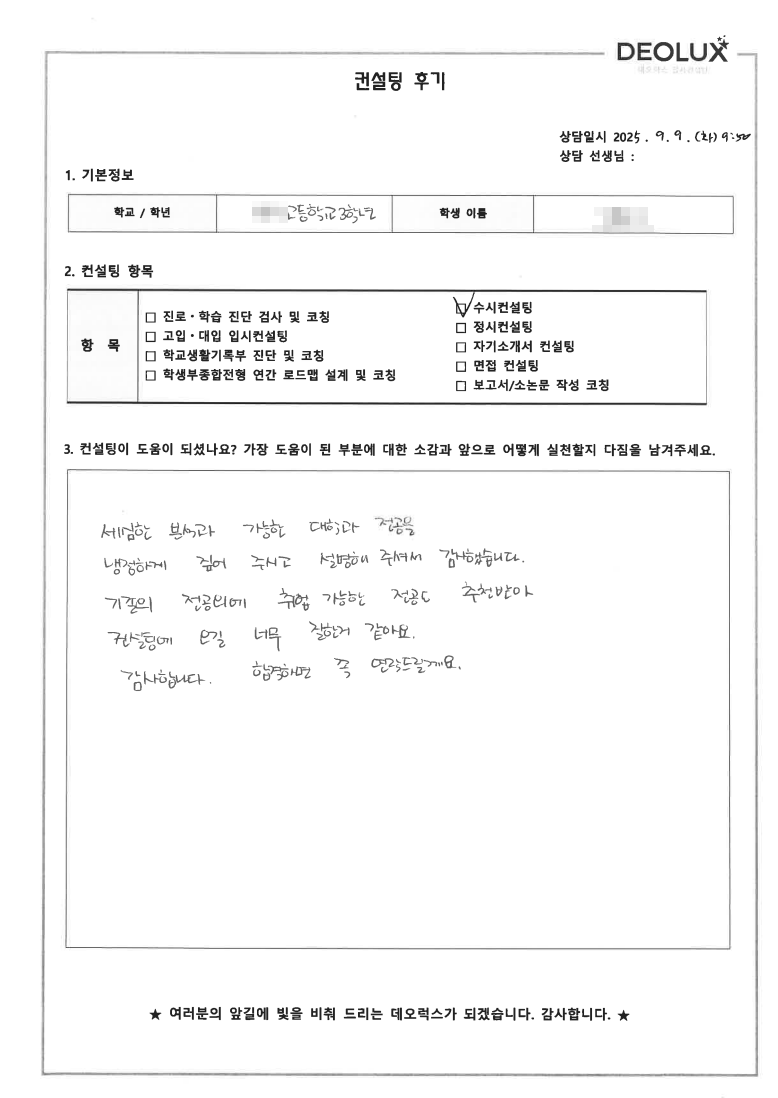 DEOLUX
컨설팅 후기
상담일시 2025. 9. 9. (화) 9:50
상담 선생님 :
1. 기본정보
학교 / 학년
고등학교 3학년
학생 이름
2. 컨설팅 항목
항 목
□ 진로·학습 진단 검사 및 코칭
□ 고입·대입 입시컨설팅
□ 학교생활기록부 진단 및 코칭
□ 학생부종합전형 연간 로드맵 설계 및 코칭
☑ 수시컨설팅
□ 정시컨설팅
□ 자기소개서 컨설팅
□ 면접 컨설팅
□ 보고서/소논문 작성 코칭
3. 컨설팅이 도움이 되셨나요? 가장 도움이 된 부분에 대한 소감과 앞으로 어떻게 실천할지 다짐을 남겨주세요.
세심한 분석과 가능한 대학과 전공을
냉정하게 짚어 주시고 설명해 주셔서 감사했습니다.
기존의 전공외에 취업 가능한 전공도 추천받아
컨설팅에 오길 너무 잘한거 같아요.
감사합니다. 합격하면 꼭 연락드릴게요.
★ 여러분의 앞길에 빛을 비춰 드리는 데오럭스가 되겠습니다. 감사합니다. ★